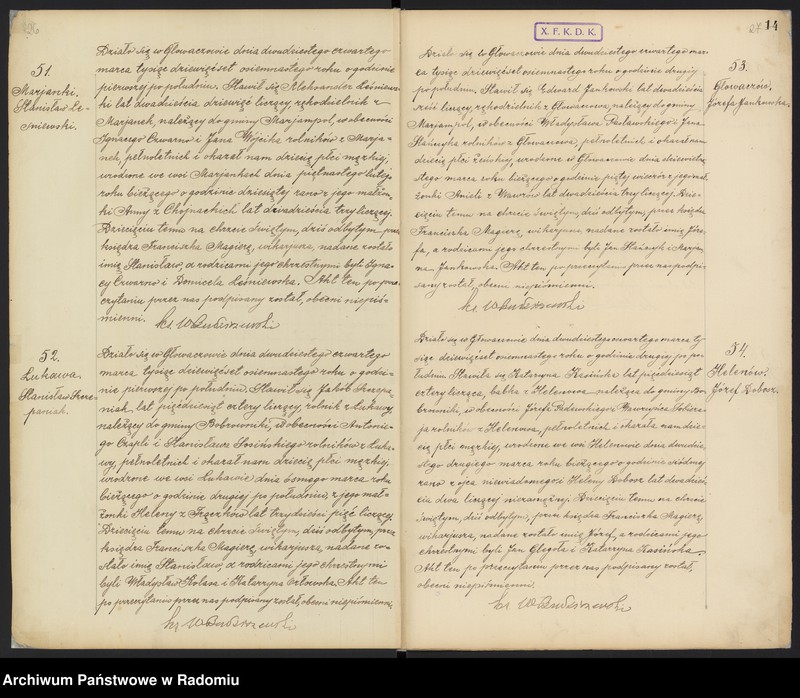 126
51.
Marjanki.
Stanisław Le-
śniewski.
Działo się w Głowaczowie dnia dwudziestego czwartego
marca tysiąc dziewięćset osiemnastego roku o godzinie
pierwszej po południu. Stawił się Aleksander Leśniews-
ki lat dwadzieścia dziewięć liczący, rękodzielnik z
Marjanek, należący do gminy Marjampol, w obecności
Ignacego Czwarno i Jana Wójcika rolników z Marja-
nek, pełnoletnich i okazał nam dziecię płci męzkiej,
urodzone we wsi Marjankach dnia piętnastego lutego
roku bieżącego o godzinie dziesiątej rano z jego małżon-
ki Anny z Chojnackich lat dwadzieścia trzy liczącej.
Dziecięciu temu na chrzcie świętym, dziś odbytym przez
księdza Franciszka Magierę, wikarjusza, nadane zostało
imię Stanisław, a rodzicami jego chrzestnymi byli Igna-
cy Czwarno i Leśniewska. Akt ten po prze-
czytaniu przez nas podpisany został, obecni niepiś-
mienni.
52.
Łukawa.
Stanisław Szcze-
paniak.
Działo się w Głowaczowie dnia dwudziestego czwartego
marca tysiąc dziewięćset osiemnastego roku o godzi-
nie pierwszej po południu. Stawił się Jakób Szczepa-
niak, lat pięćdziesiąt cztery liczący, rolnik z Łukawy
należący do gminy Bobrowniki, w obecności Antonie-
go Czapli i Stanisława Sosińskiego rolników z Łuka-
wy, pełnoletnich i okazał nam dziecię płci męzkiej,
urodzone we wsi Łukawie dnia ósmego marca roku
bieżącego o godzinie drugiej po południu, z jego mał-
żonki Heleny z lat trzydzieści pięć liczącej.
Dziecięciu temu na chrzcie świętym, dziś odbytym, przez
księdza Franciszka Magierę, wikarjusza, nadane zo-
stało imię Stanisław, a rodzicami jego chrzestnymi
byli Władysław i Katarzyna Orłowska. Akt ten
po przeczytaniu przez nas podpisany został, obecni niepiśmienni.
X. F. K. D. K.
27
14
53.
Głowaczów.
Józefa Jankowska.
Działo się w Głowaczowie dnia dwudziestego czwartego mar-
ca tysiąc dziewięćset osiemnastego roku o godzinie drugiej
po południu. Stawił się Edward Jankowski lat dwadzieścia
sześć liczący, rękodzielnik z Głowaczowa, należący do gminy
Marjampol, w obecności Władysława Pawłowskiego i Jana
rolników z Głowaczowa, pełnoletnich i okazał nam
dziecię płci żeńskiej, urodzone w Głowaczowie dnia dziewiętna-
stego marca roku bieżącego o godzinie piątej wieczór z jego mał-
żonki Anieli z lat dwadzieścia trzy liczącej. Dzie-
cięciu temu na chrzcie świętym, dziś odbytym, przez księdza
Franciszka Magierę, wikarjusza nadane zostało imię Józe-
fa, a rodzicami jego chrzestnymi byli Jan i Marjan-
na Jankowska. Akt ten po przeczytaniu przez nas podpi-
sany został, obecni niepiśmienni.
54.
Helenów.
Józef Bobosz.
Działo się w Głowaczowie dnia dwudziestego czwartego marca ty-
siąc dziewięćset osiemnastego roku o godzinie drugiej, po po-
łudniu. Stawiła się Katarzyna Kosińska lat pięćdziesiąt
cztery licząca, babka z Helenowa należąca do gminy Bo-
browniki, w obecności Józefa i Wawrzyńca
rolników z Helenowa, pełnoletnich i okazała nam dzie-
cię płci męzkiej, urodzone we wsi Helenowie dnia dwudzie-
stego drugiego marca roku bieżącego o godzinie siódmej
rano z ojca niewiadomego i Heleny Bobosz lat dwadzieś-
cia dwa liczącej niezamężnej. Dziecięciu temu na chrzcie
świętym, dziś odbytym, przez księdza Franciszka Magierę,
wikarjusza, nadane zostało imię Józef, a rodzicami jego
chrzestnymi byli Jan i Katarzyna Kosińska.
Akt ten po przeczytaniu przez nas podpisany został,
obecni niepiśmienni.
Archiwum Państwowe w Radomiu